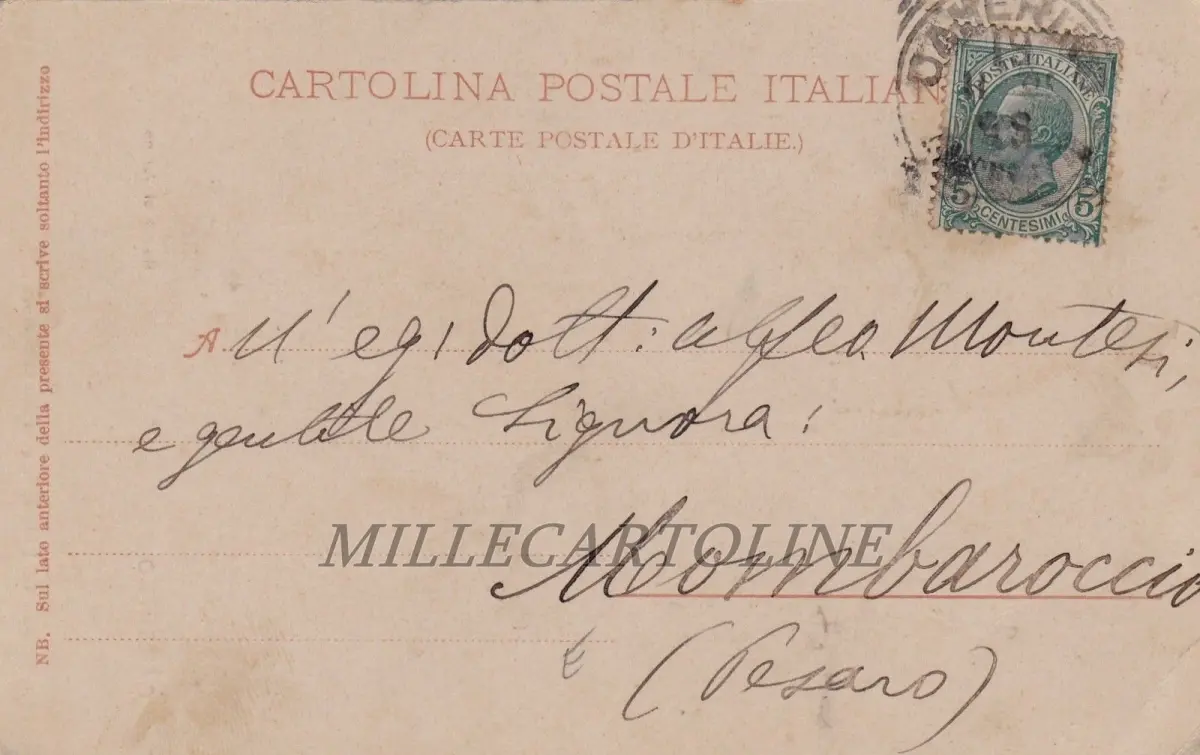 CARTOLINA POSTALE ITALIAN
(CARTE POSTALE D'ITALIE.)
POSTE ITALIANE
5 CENTESIMI 5
NB. Sul lato anteriore della presente si scrive soltanto l'indirizzo
A ll' egi Dott: Alfeo Montesi,
e gentile Signora!
MILLECARTOLINE
Mombaroccio
(Pesaro)